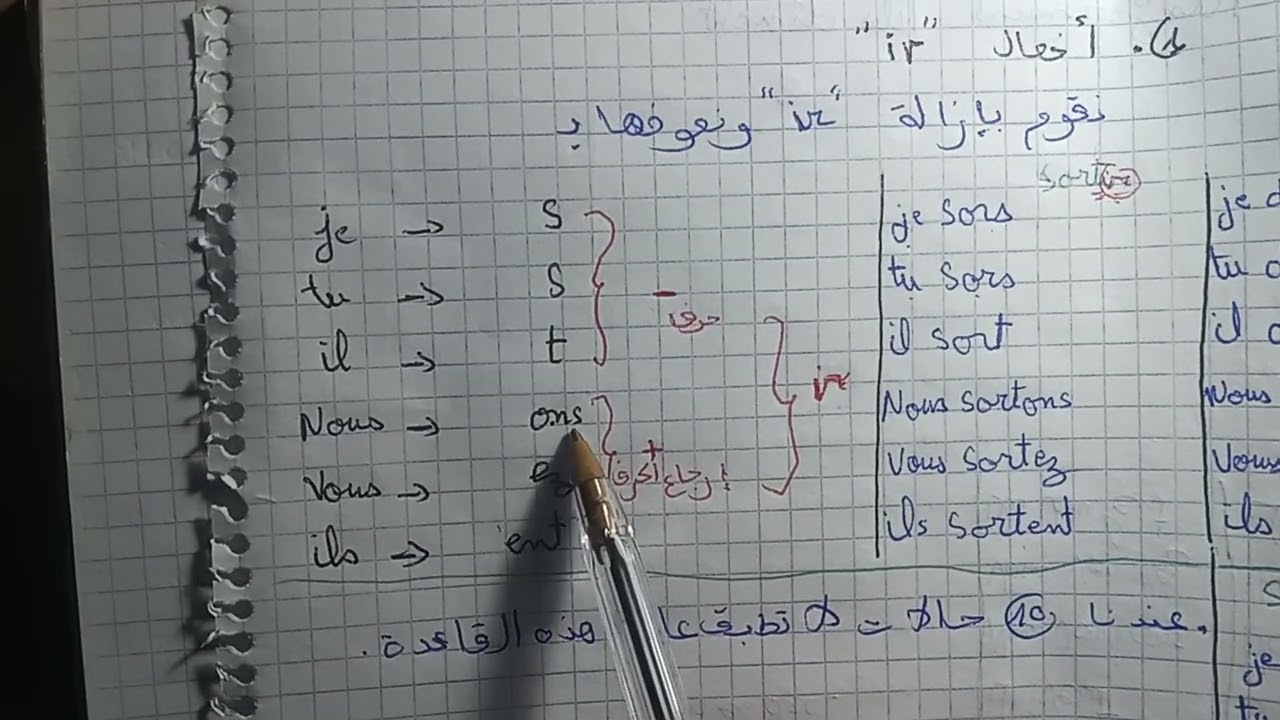 1). أفعال "ir"
نقوم بإزالة "ir" ونعوضها بـ
sortir
je → s
tu → s
il → t
- حرف
Nous → ons
Vous → ez
ils → ent
+ إرجاع الحرف
ir
je sors
tu sors
il sort
Nous sortons
Vous sortez
ils sortent
je
tu
il
Nous
Vous
ils
. عندنا 10 حالات لا تطبق عليها هذه القاعدة .
je